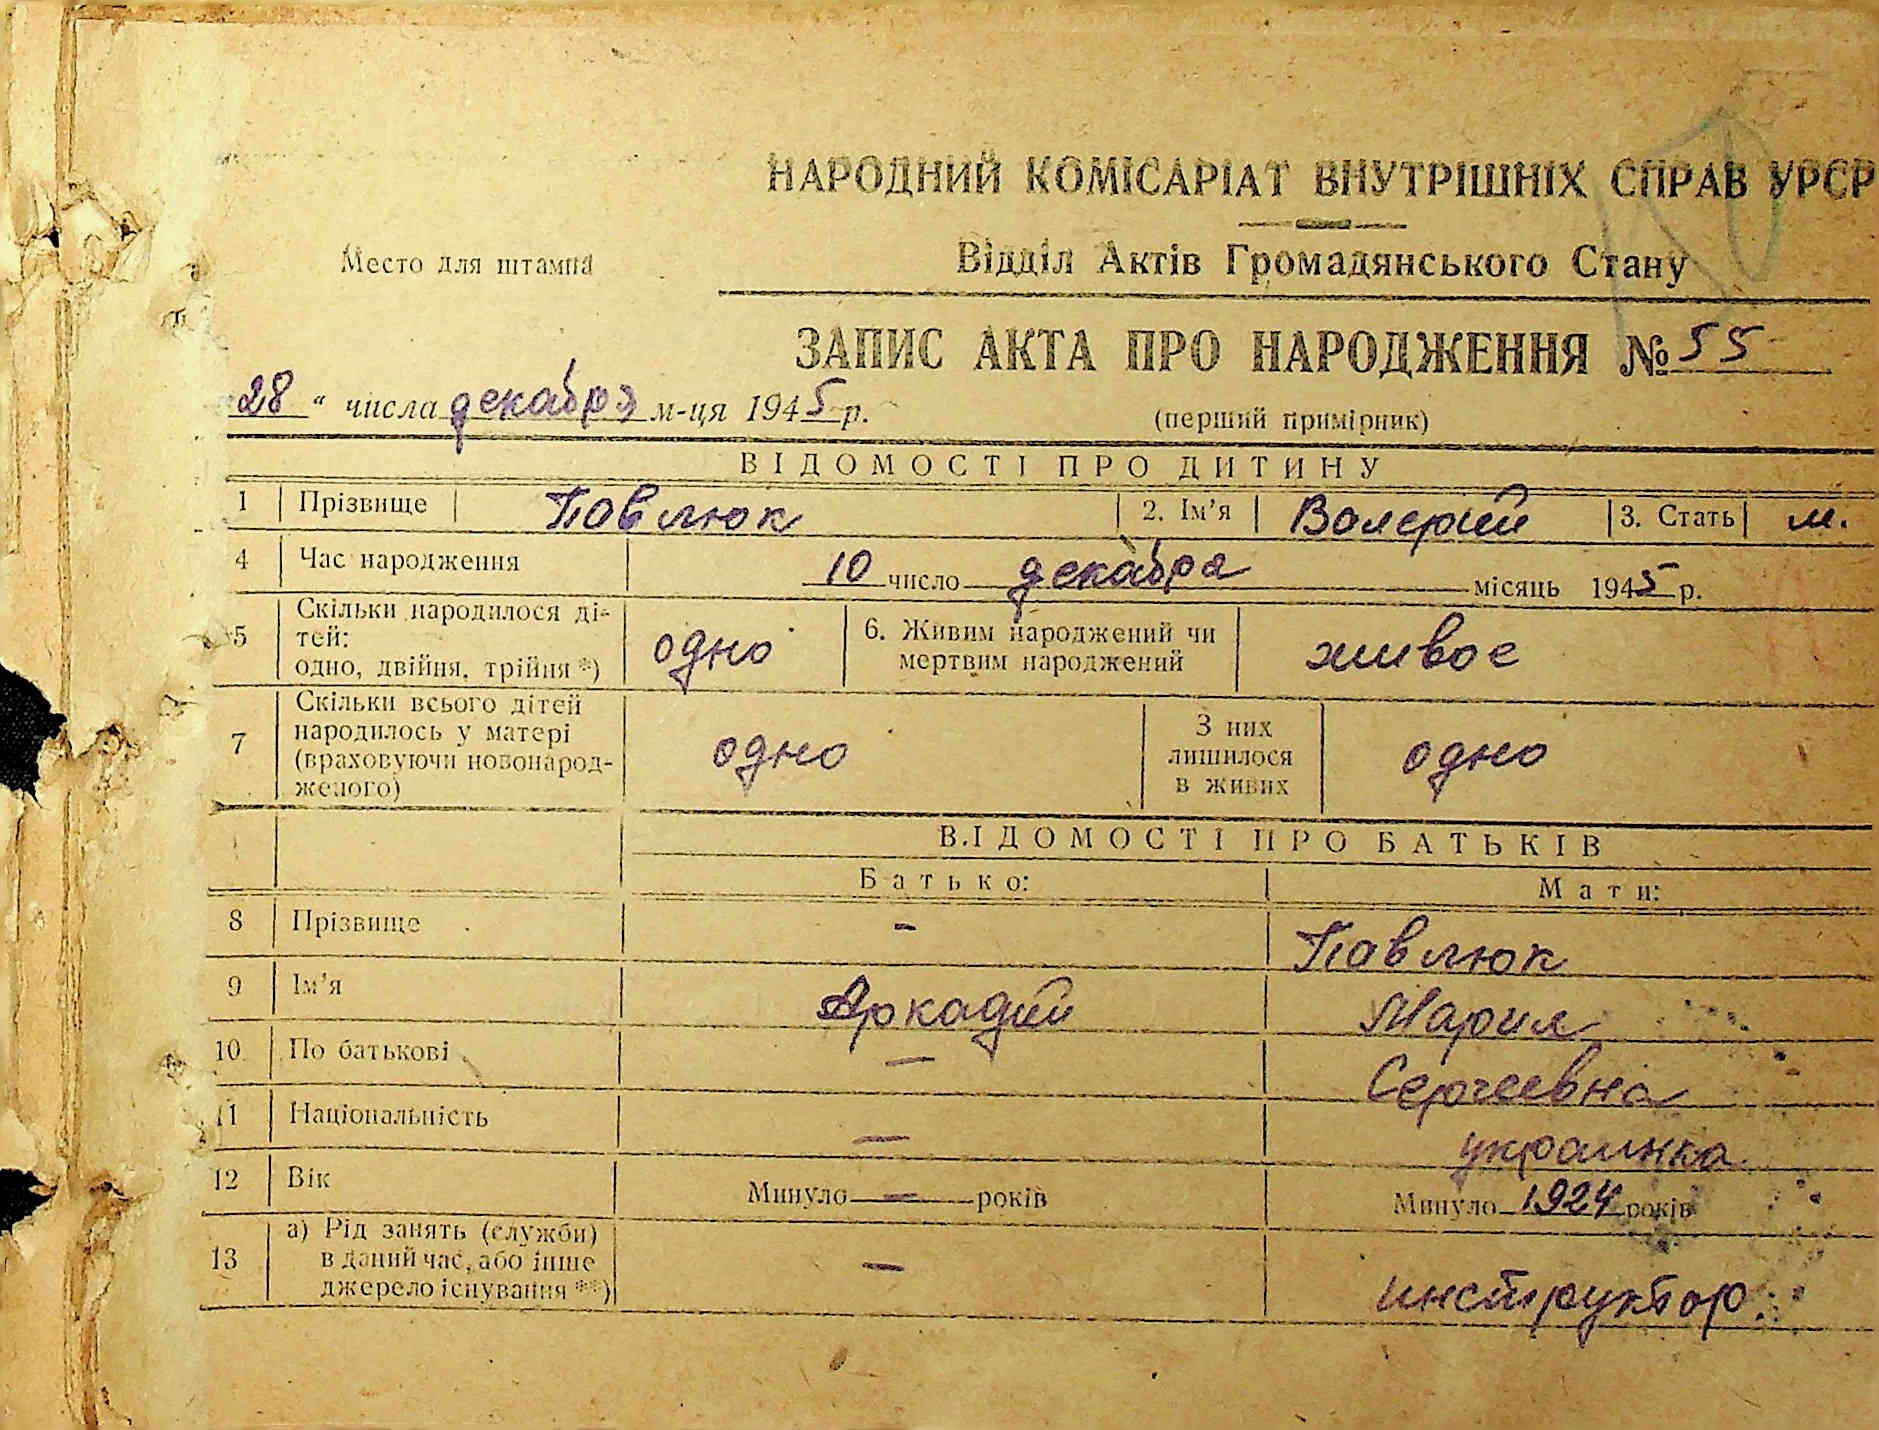 НАРОДНИЙ КОМІСАРІАТ ВНУТРІШНІХ СПРАВ УРСР
Место для штампа
Відділ Актів Громадянського Стану
ЗАПИС АКТА ПРО НАРОДЖЕННЯ № 55
28 " числа декабря м-ця 1945 р.
(перший примірник)
ВІДОМОСТІ ПРО ДИТИНУ
1 Прізвище Павлюк 2. Ім'я Валерий 3. Стать м.
4 Час народження 10 число декабря місяць 1945 р.
5 Скільки народилося ді-
тей:
одно, двійня, трійня *) одно 6. Живим народжений чи
мертвим народжений живое
7 Скільки всього дітей
народилось у матері
(враховуючи новонарод-
женого) одно З них
лишилося
в живих одно
ВІДОМОСТІ ПРО БАТЬКІВ
Батько: Мати:
8 Прізвище - Павлюк
9 Ім'я Аркадий Мария
10 По батькові — Сергеевна
11 Національність — украинка
12 Вік Минуло — років Минуло 1924 років
13 а) Рід занять (служби)
в даний час, або інше
джерело існування **) — инструктор.